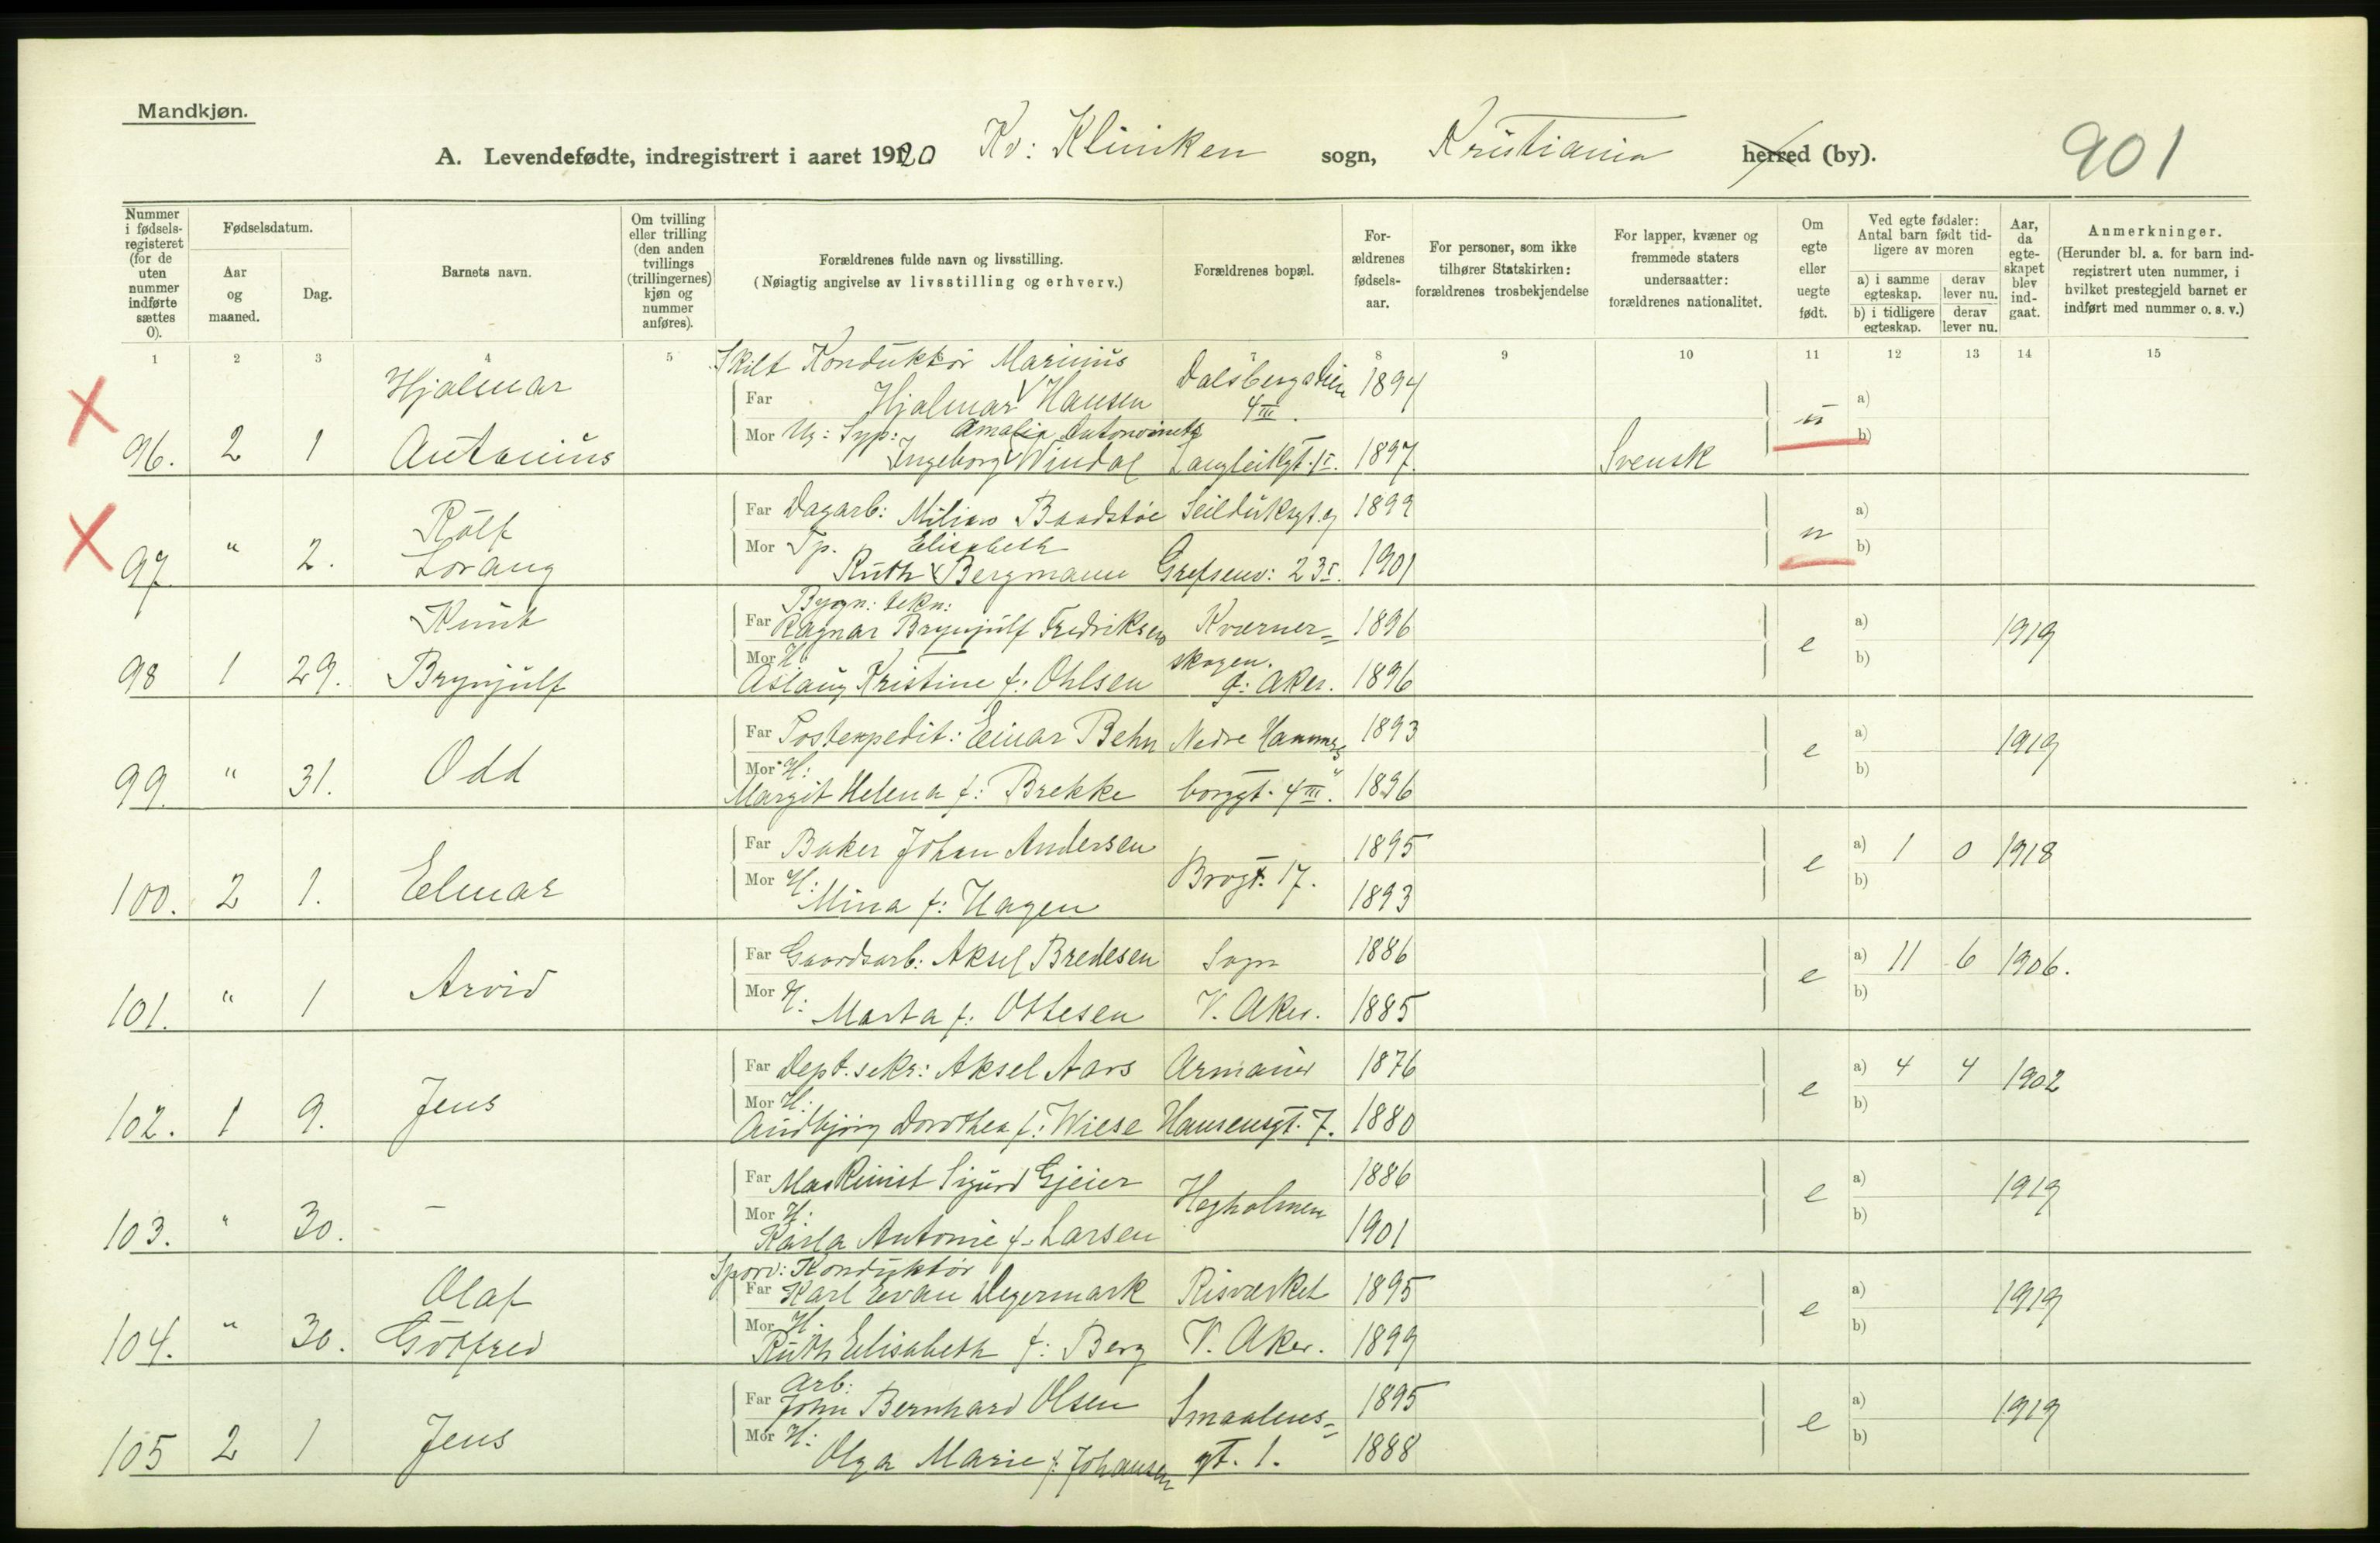 Mandkjøn.
A. Levendefødte, indregistrert i aaret 1920 Kv: Kliniken sogn, Kristiania herred (by). 901
Nummer i fødselsregisteret (for de uten nummer indførte sættes 0).
Fødselsdatum.
Aar og maaned.
Dag.
Barnets navn.
Om tvilling eller trilling (den anden tvillings (trillingernes) kjøn og nummer anføres).
Forældrenes fulde navn og livsstilling.
(Nøiagtig angivelse av livsstilling og erhverv.)
Forældrenes bopæl.
Forældrenes fødselsaar.
For personer, som ikke tilhører Statskirken: forældrenes trosbekjendelse
For lapper, kvæner og fremmede staters undersaatter: forældrenes nationalitet.
Om egte eller uegte født.
Ved egte fødsler: Antal barn født tidligere av moren
a) i samme egteskap. derav lever nu.
b) i tidligere egteskap. derav lever nu.
Aar, da egteskapet blev indgaat.
Anmerkninger.
(Herunder bl. a. for barn indregistrert uten nummer, i hvilket prestegjeld barnet er indført med nummer o. s. v.)
1 2 3 4 5 8 9 10 11 12 13 14 15
Skilt Konduktør Marinius
Hjalmar Far Hjalmar Hansen Dalsbergstien 4 III. 1894 a)
Mor Ug: Syp: Amalia u b)
96. 2 1 Antonius Ingeborg Windal 1897. Svensk
Far Dagarb: Baadstøe Seilduksgt. 9 1899 a)
Rolf Mor Tp. Elisabeth u b)
97 " 2. Lorang Ruth Bergmann Grefsenv: 23 I. 1901
Bygn: tekn:
Knut Far Ragnar Brynjulf Fredriksen Kværner= 1896 a) 1919
Mor H: skogen. e b)
98 1 29. Brynjulf Aslaug Kristine f: Ohlsen Ø: Aker. 1896
Far Postexpedit: Einar Behn Nedre Hammers 1893 a) 1919
Odd Mor H: e b)
99. " 31. Margit Helena f: Brekke borggt. 4 III. 1896
Far Baker Johan Andersen 1895 a) 1 0 1918
Elmar Mor H: Brogt. 17. e b)
100. 2 1. Mina f: Hagen 1893
Far Gaardsarb: Aksel Bredesen Sogn 1886 a) 11 6 1906.
Arvid Mor H: e b)
101. " 1 Marta f: Ottesen V. Aker. 1885
Far Dept. sekr: Aksel Aars Armauer 1876 a) 4 4 1902
Jens Mor H: e b)
102. 1 9. Audbjørg Dorothea f: Wiese Hansensgt. 7. 1880
Far Maskinist Sigurd Gjeier 1886 a) 1919
Mor H: Hegholmen e b)
103. " 30. – Karla Antonie f. Larsen 1901
Sporv: Konduktør
Olaf Far Karl Evan Degermark Risværket 1895 a) 1919
Mor H. e b)
104. " 30. Gotfred Ruth Elisabeth f: Berg V. Aker. 1899
Arb:
Far John Bernhard Olsen Smaalens= 1895 a) 1919
Jens Mor H: e b)
105 2 1 Olga Marie f: Johansen gt. 1. 1888